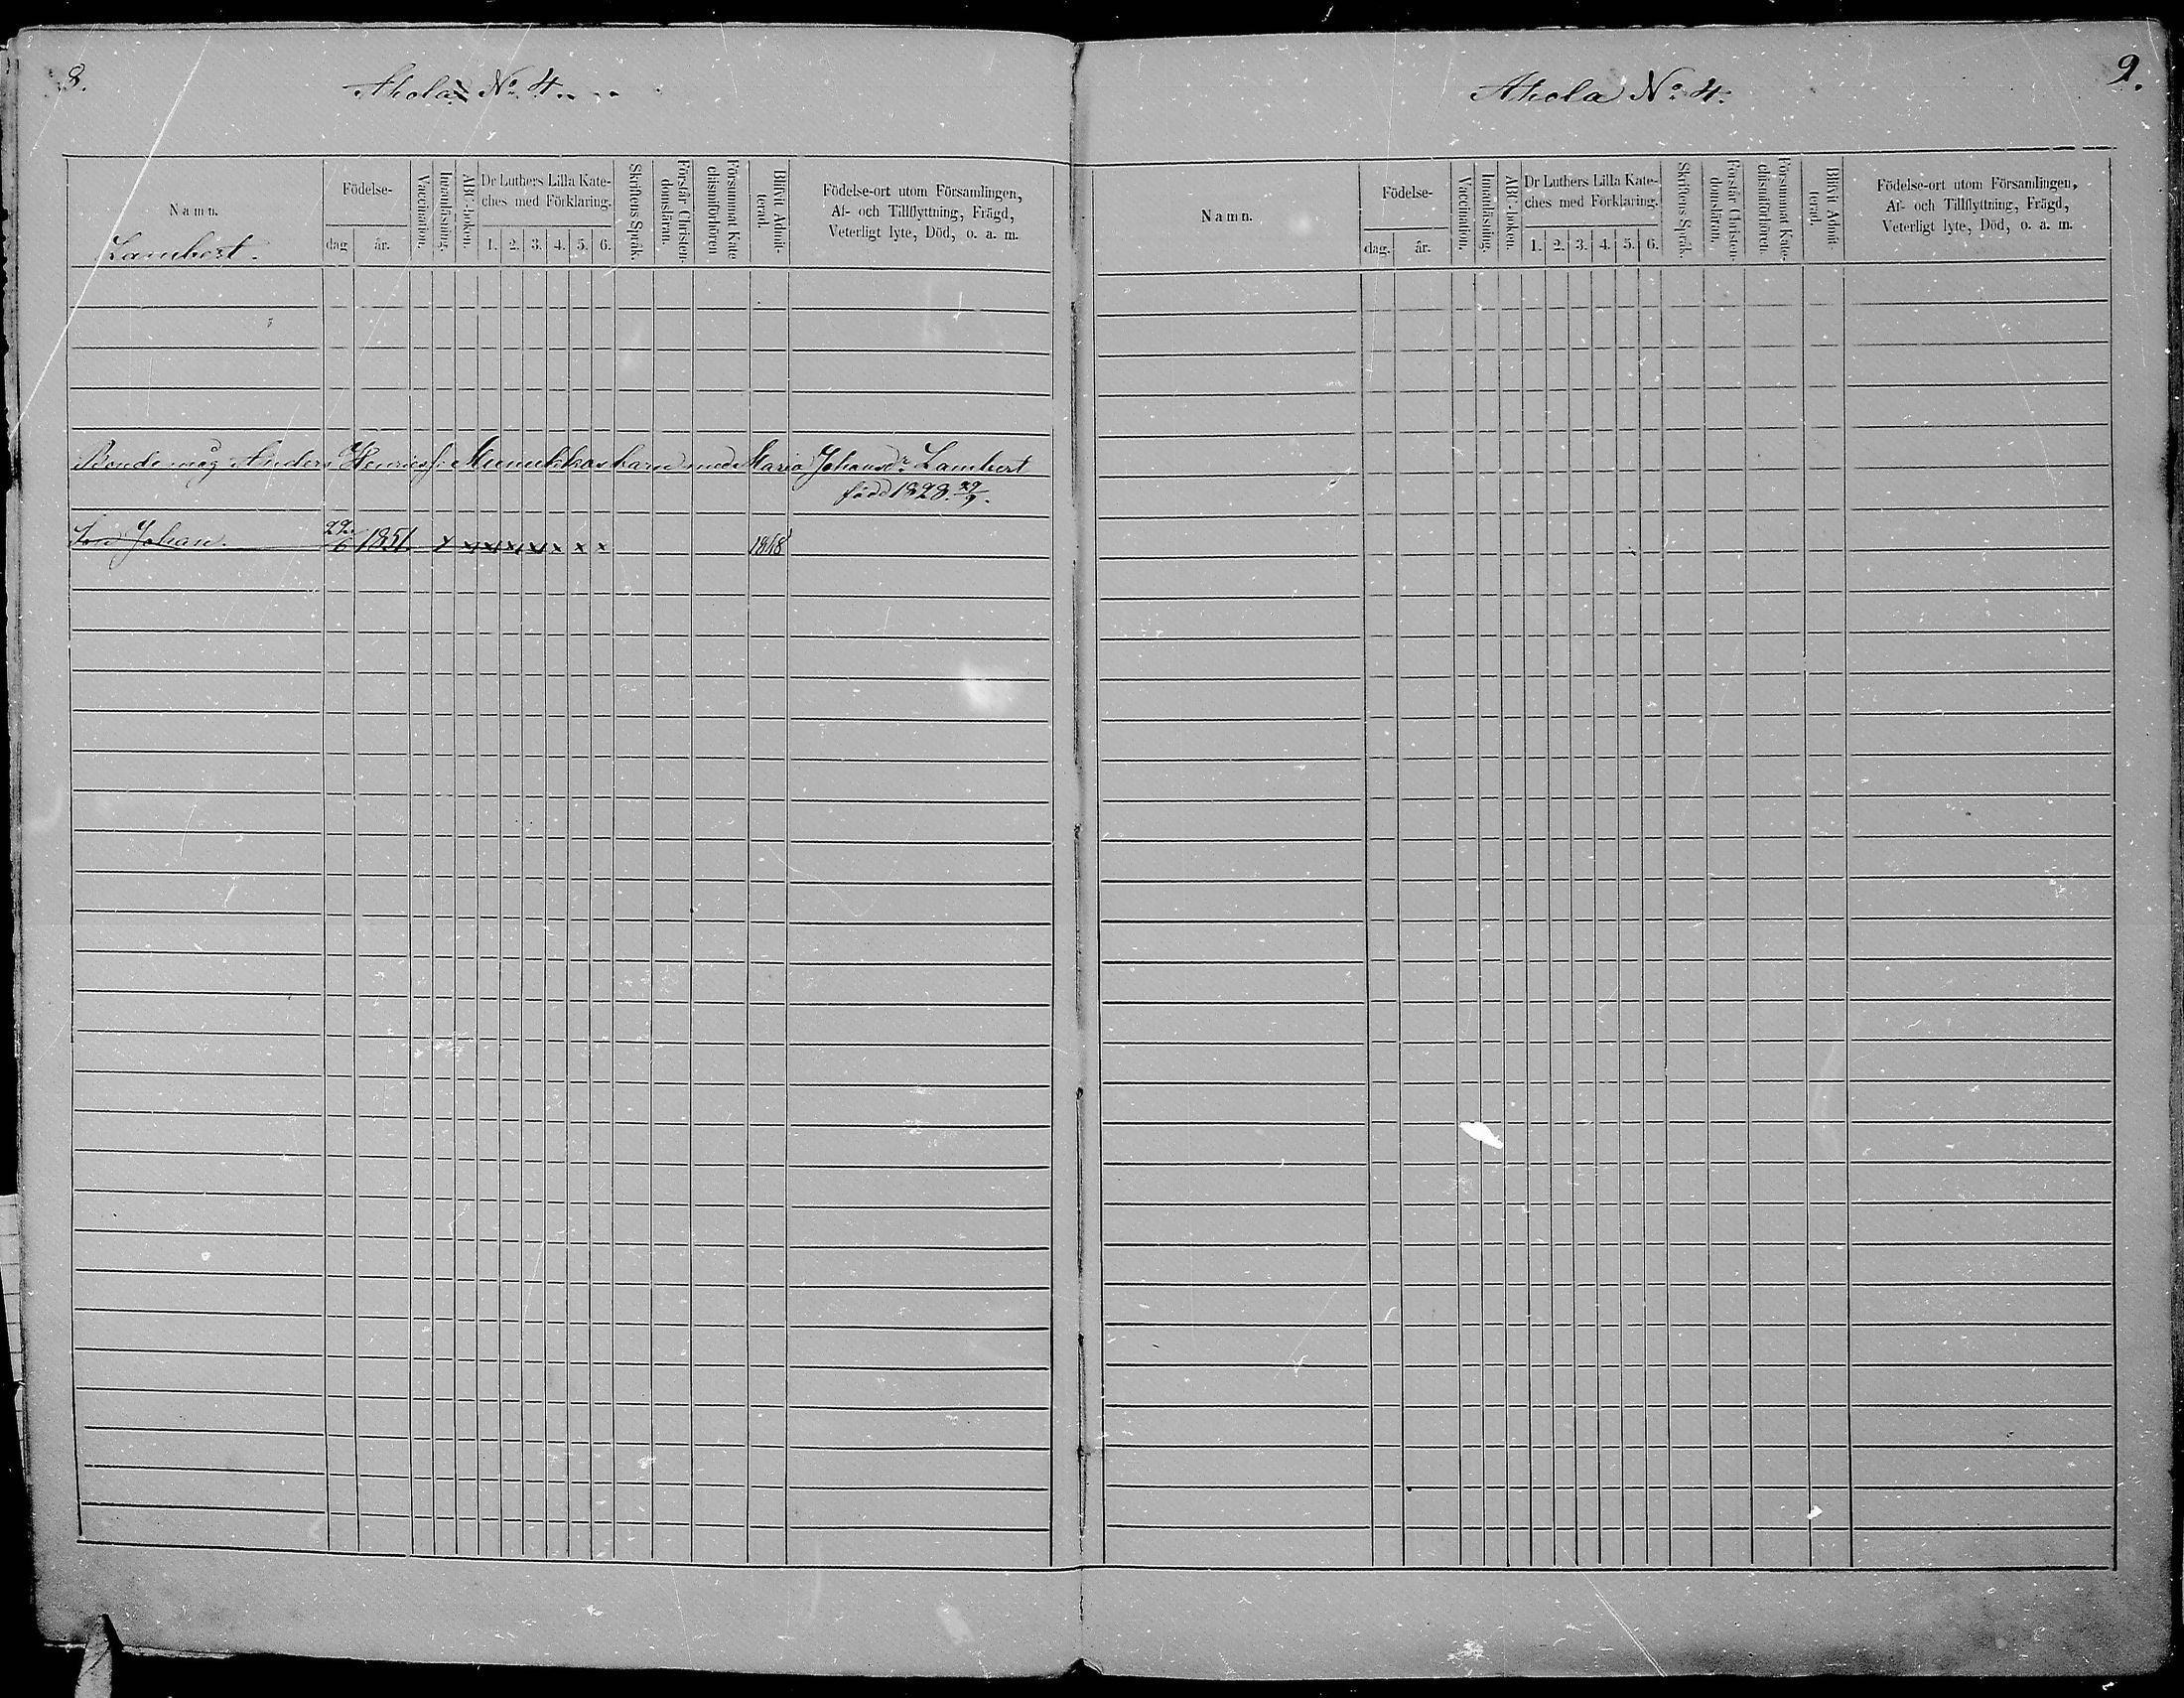 8.
Ahola No. 4.
Namn.
Lambert.
Födelse-
dag
år.
Vaccination.
Innanläsning.
ABC-boken.
Dr Luthers Lilla Kate-
ches med Förklaring.
1. 2. 3. 4. 5. 6.
Skriftens Språk.
Förstår Christen-
domsläran.
Försummat Kate
chismiförhören
Blifvit Admit-
terad.
Födelse-ort utom Församlingen,
Af- och Tillflyttning, Frägd,
Veterligt lyte, Död, o. a. m.
Bondemåg Anders Henricss. Munukkas barn med Maria Johansdr Lambert
född 1828. 29/9.
Son Johan. 1851 x x x x x x x x 1868
9.
Ahola No. 4.
Namn.
Födelse-
dag.
år.
Vaccination.
Innanläsning.
ABC-boken.
Dr Luthers Lilla Kate-
ches med Förklaring.
1. 2. 3. 4. 5. 6.
Skriftens Språk.
Förstår Christen-
domsläran.
Försummat Kate-
chismiförhören.
Blifvit Admit-
terad.
Födelse-ort utom Församlingen,
Af- och Tillflyttning, Frägd,
Veterligt lyte, Död, o. a. m.